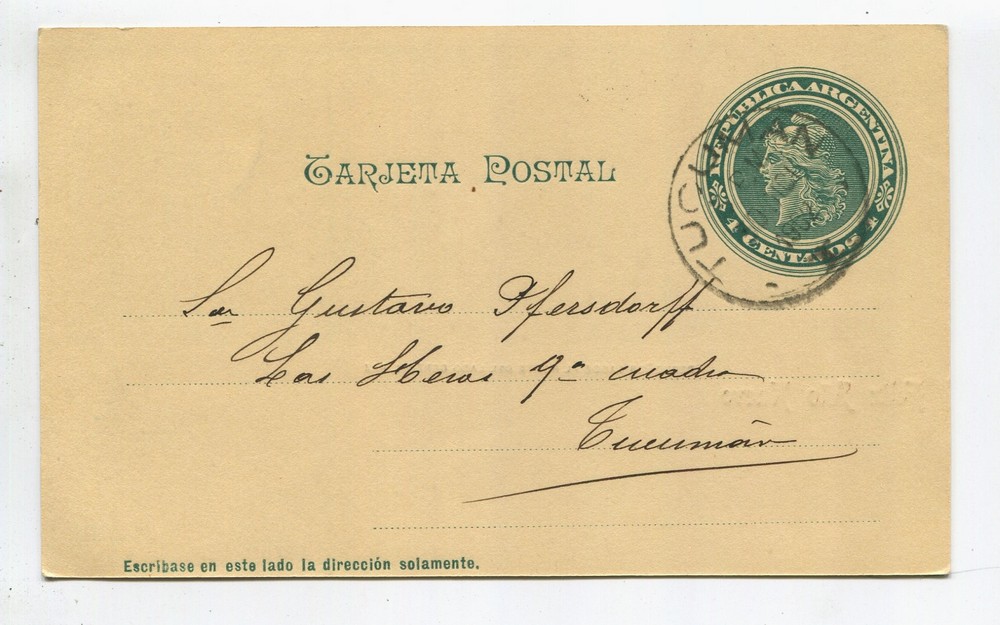 REPÚBLICA ARGENTINA
4 CENTAVOS
TUCUMAN
TARJETA POSTAL
Sor Gustavo Pfersdorff
Las Heras 9a cuadra
Tucumán
Escríbase en este lado la dirección solamente.